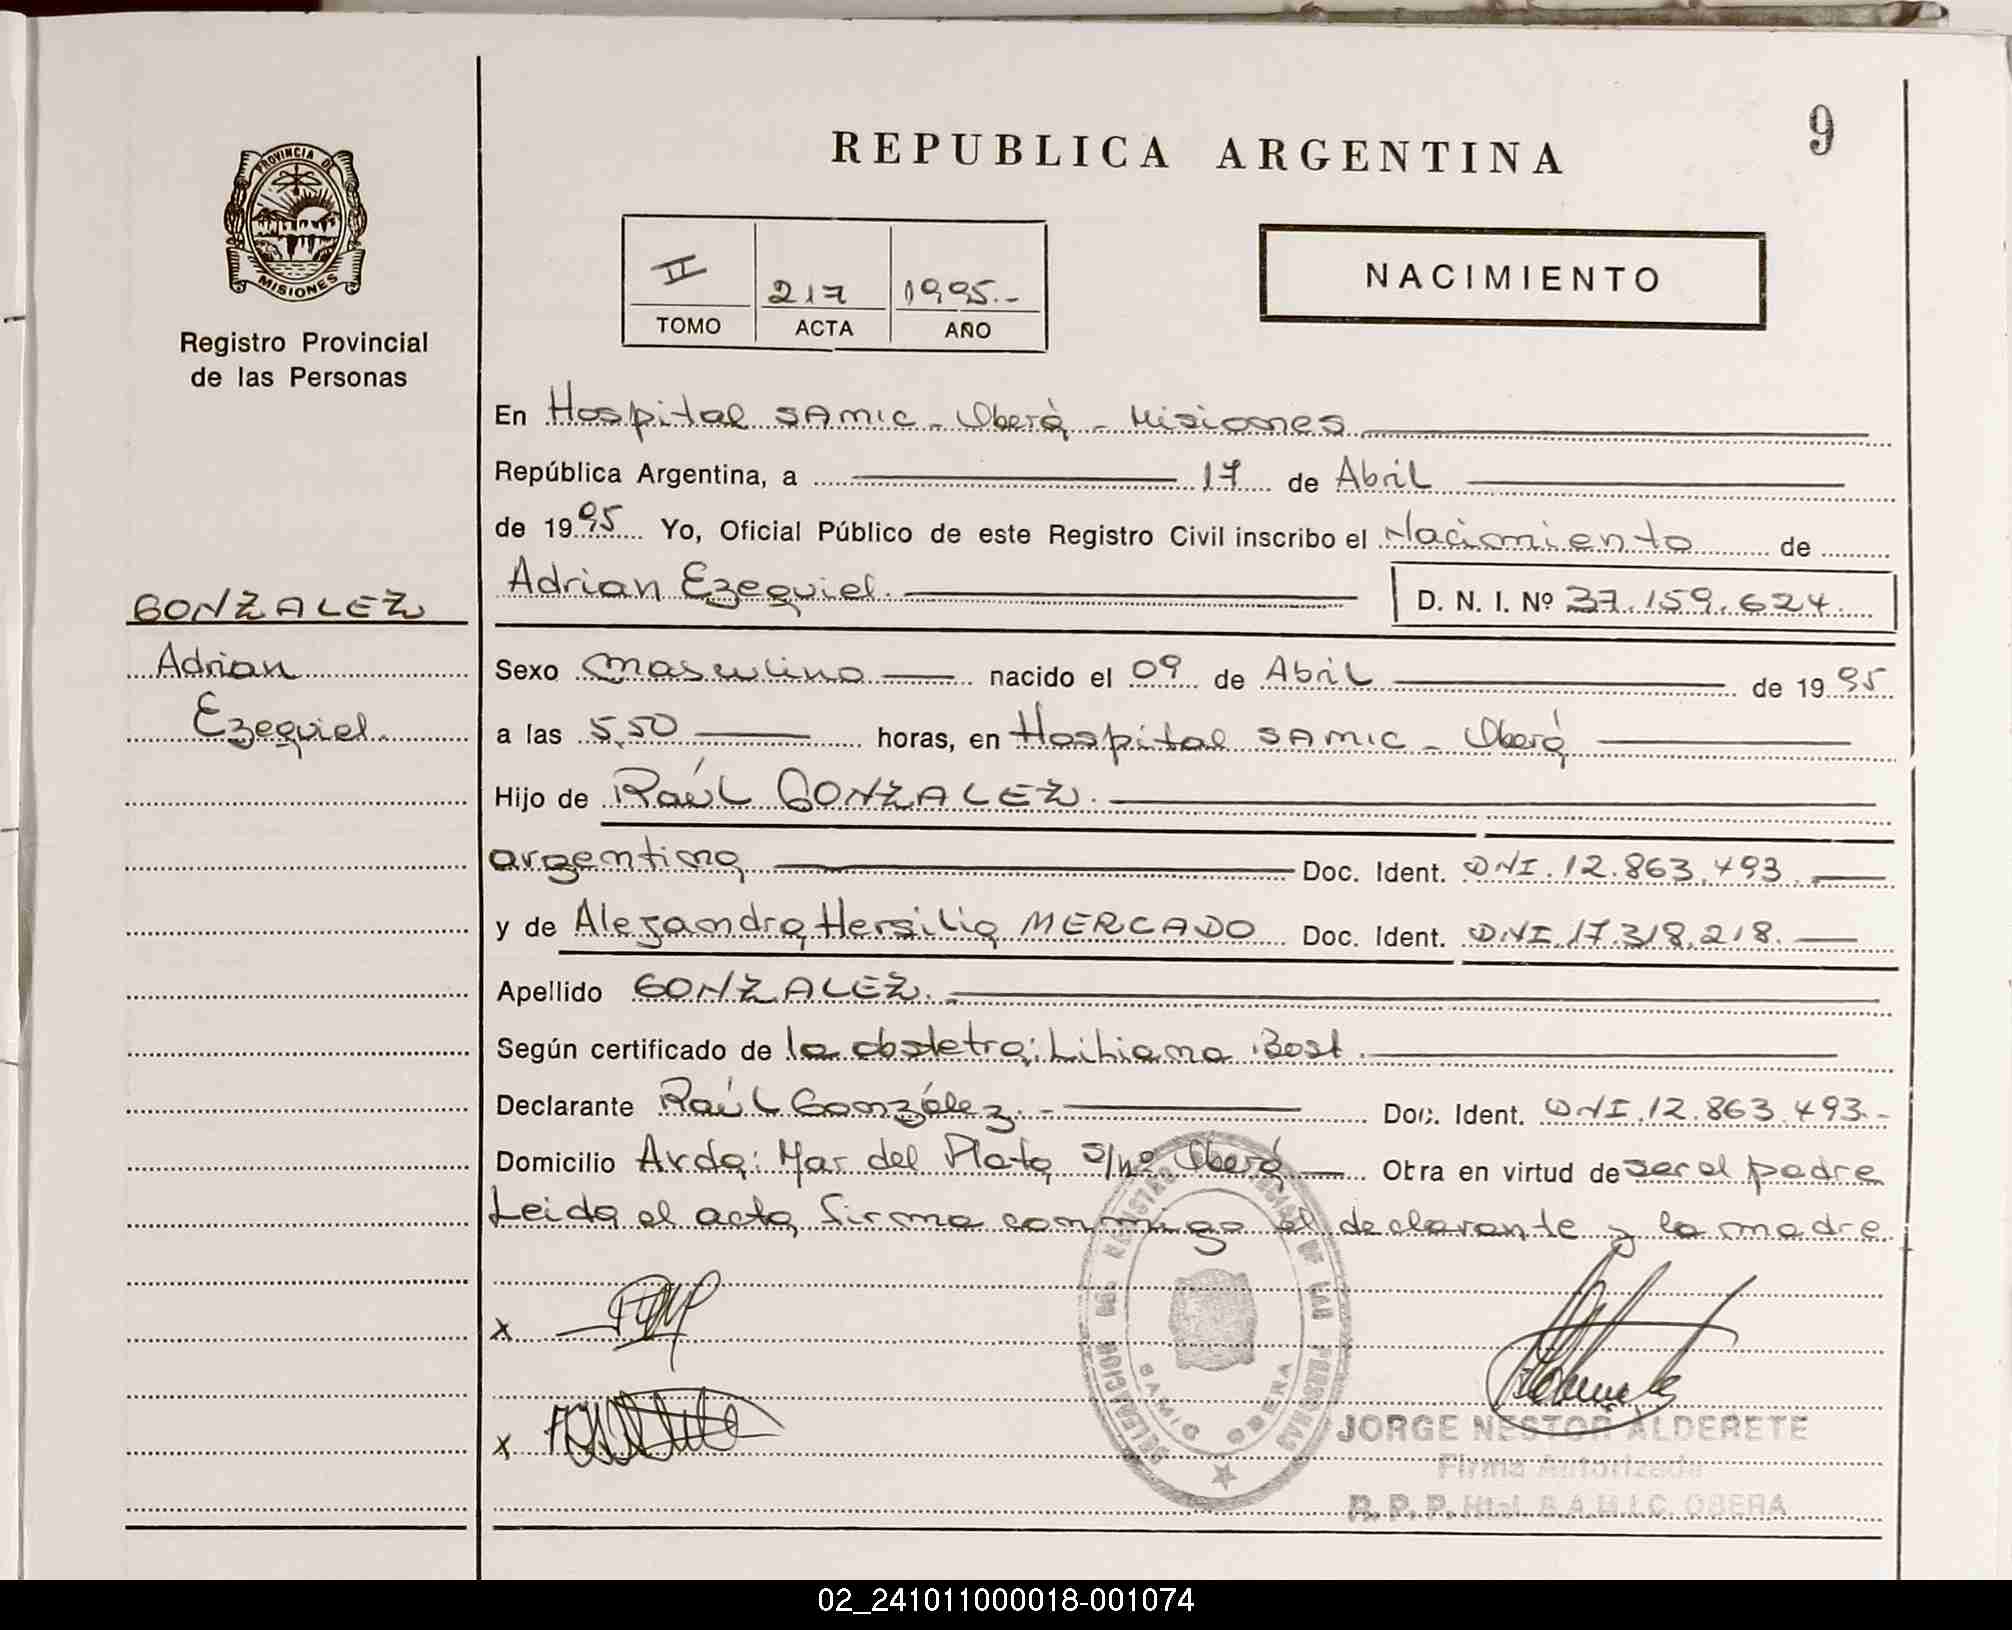 REPUBLICA ARGENTINA
9
PROVINCIA DE
MISIONES
Registro Provincial
de las Personas
II 217 1995.-
TOMO ACTA AÑO
NACIMIENTO
En Hospital SAMIC - Oberá - Misiones
República Argentina, a 17 de Abril
de 1995 Yo, Oficial Público de este Registro Civil inscribo el Nacimiento de
Adrian Ezequiel. D. N. I. Nº 37.159.624
GONZALEZ
Adrian
Ezequiel.
Sexo masculino nacido el 09 de Abril de 1995
a las 5,50 horas, en Hospital SAMIC - Oberá
Hijo de Raúl GONZALEZ.
argentina Doc. Ident. DNI. 12.863.493
y de Alejandra Hersilia MERCADO Doc. Ident. DNI. 17.318.218.
Apellido GONZALEZ.
Según certificado de la obstetra: Liliana Bost.
Declarante Raúl González. - Doc. Ident. DNI. 12.863.493.-
Domicilio Avda: Mar del Plata S/Nº Oberá Otra en virtud de ser el padre
Leida el acta, firma conmigo el declarante y la madre.
x
x
DELEGACION DEL REGISTRO PROVINCIAL DE LAS PERSONAS
SAMIC OBERA
JORGE NESTOR ALDERETE
Firma Autorizada
R. P. P. Htal. S.A.M.I.C. OBERA
02_241011000018-001074